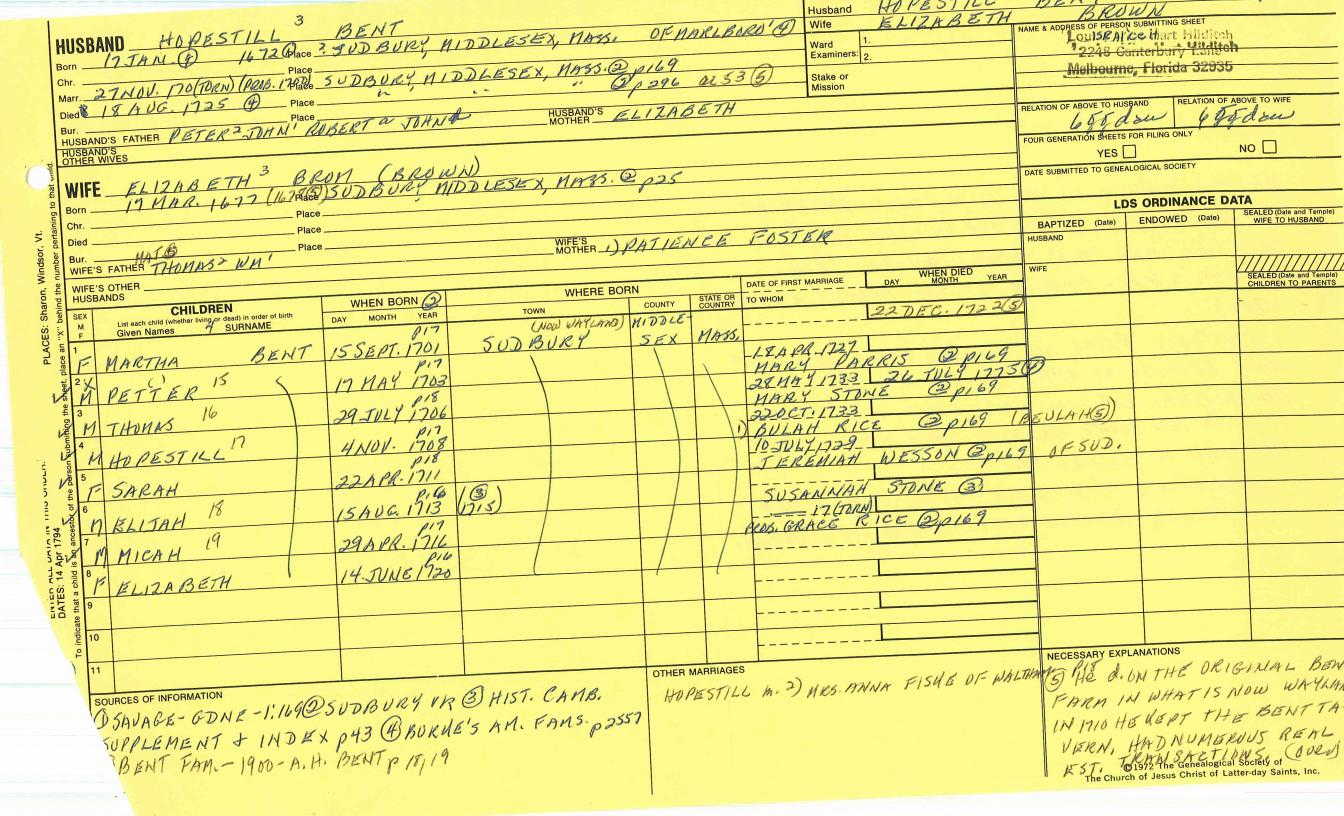 Husband HOPESTILL BENT
Wife ELIZABETH BROWN
HUSBAND HOPESTILL 3 BENT
Born 17 JAN. ④ 1672 ④ Place ? SUDBURY, MIDDLESEX, MASS. OF MARLBORO' ④
Chr. Place
Marr. 27 NOV. 170(TORN) (PROB. 1700) Place SUDBURY, MIDDLESEX, MASS. ② p169
Died 18 AUG. 1725 ④ Place " " " ② p296 ae 53 ⑤
Bur. Place
HUSBAND'S FATHER PETER² JOHN¹ ROBERT JOHN
HUSBAND'S MOTHER ELIZABETH
HUSBAND'S OTHER WIVES
Ward Examiners: 1.
2.
Stake or Mission
NAME & ADDRESS OF PERSON SUBMITTING SHEET
Louise Hart Hilditch
2248 Canterbury
Melbourne, Florida 32935
RELATION OF ABOVE TO HUSBAND
RELATION OF ABOVE TO WIFE
6 gg dau
6 gg dau
FOUR GENERATION SHEETS FOR FILING ONLY
YES NO
DATE SUBMITTED TO GENEALOGICAL SOCIETY
WIFE ELIZABETH 3 BROM (BROWN)
Born 17 MAR. 1677 Place SUDBURY, MIDDLESEX, MASS. ② p25
Chr. Place
Died Place
Bur. Place
WIFE'S FATHER MAJ ⑤ THOMAS² WM¹
WIFE'S MOTHER 1) PATIENCE FOSTER
WIFE'S OTHER HUSBANDS
LDS ORDINANCE DATA
BAPTIZED (Date) ENDOWED (Date) SEALED (Date and Temple) WIFE TO HUSBAND
HUSBAND
WIFE
SEALED (Date and Temple) CHILDREN TO PARENTS
SEX M F
CHILDREN
List each child (whether living or dead) in order of birth
Given Names 4 SURNAME
WHEN BORN ②
DAY MONTH YEAR
WHERE BORN
TOWN COUNTY STATE OR COUNTRY
DATE OF FIRST MARRIAGE
TO WHOM
WHEN DIED
DAY MONTH YEAR
1 F MARTHA BENT p17 15 SEPT. 1701 (NOW WAYLAND) SUDBURY MIDDLE-SEX MASS. 22 DEC. 1722 (5)
2 X M PETTER 15 p17 17 MAY 1703 18 APR. 1727 MARY PARRIS ② p169
3 M THOMAS 16 p18 29 JULY 1706 28 MAY 1733 26 JULY 1775 MARY STONE ② p169
4 M HOPESTILL 17 p17 4 NOV. 1708 22 OCT. 1733 1) BULAH RICE ② p169 (BEULAH ⑤) OF SUD.
5 F SARAH p18 22 APR. 1711 10 JULY 1729 JEREMIAH WESSON ② p169
6 M ELIJAH 18 p16 15 AUG. 1713 (③ 1715) SUSANNAH STONE ③
7 M MICAH 19 p17 29 APR. 1716 17 (TORN) PROB. GRACE RICE ② p169
8 F ELIZABETH p16 14 JUNE 1720
9
10
11
PLACES: Sharon, Windsor, Vt.
ENTER ALL DATA IN THIS ORDER:
DATES: 14 Apr 1794
To indicate that a child is an ancestor of the person submitting the sheet, place an "X" behind the number pertaining to that child.
SOURCES OF INFORMATION
① SAVAGE-GDNE-1:169 ② SUDBURY VR ③ HIST. CAMB.
SUPPLEMENT & INDEX p43 ④ BURKE'S AM. FAMS. p2557
BENT FAM.-1900-A.H. BENT p 18, 19
OTHER MARRIAGES
HOPESTILL m. 2) MRS. ANNA FISKE OF WALTHAM p18
NECESSARY EXPLANATIONS
⑤ He d. ON THE ORIGINAL BEN
FARM IN WHAT IS NOW WAYLA
IN 1710 HE KEPT THE BENT TA-
VERN, HAD NUMEROUS REAL
EST. TRANSACTIONS. (OVER)
©1972 The Genealogical Society of
The Church of Jesus Christ of Latter-day Saints, Inc.